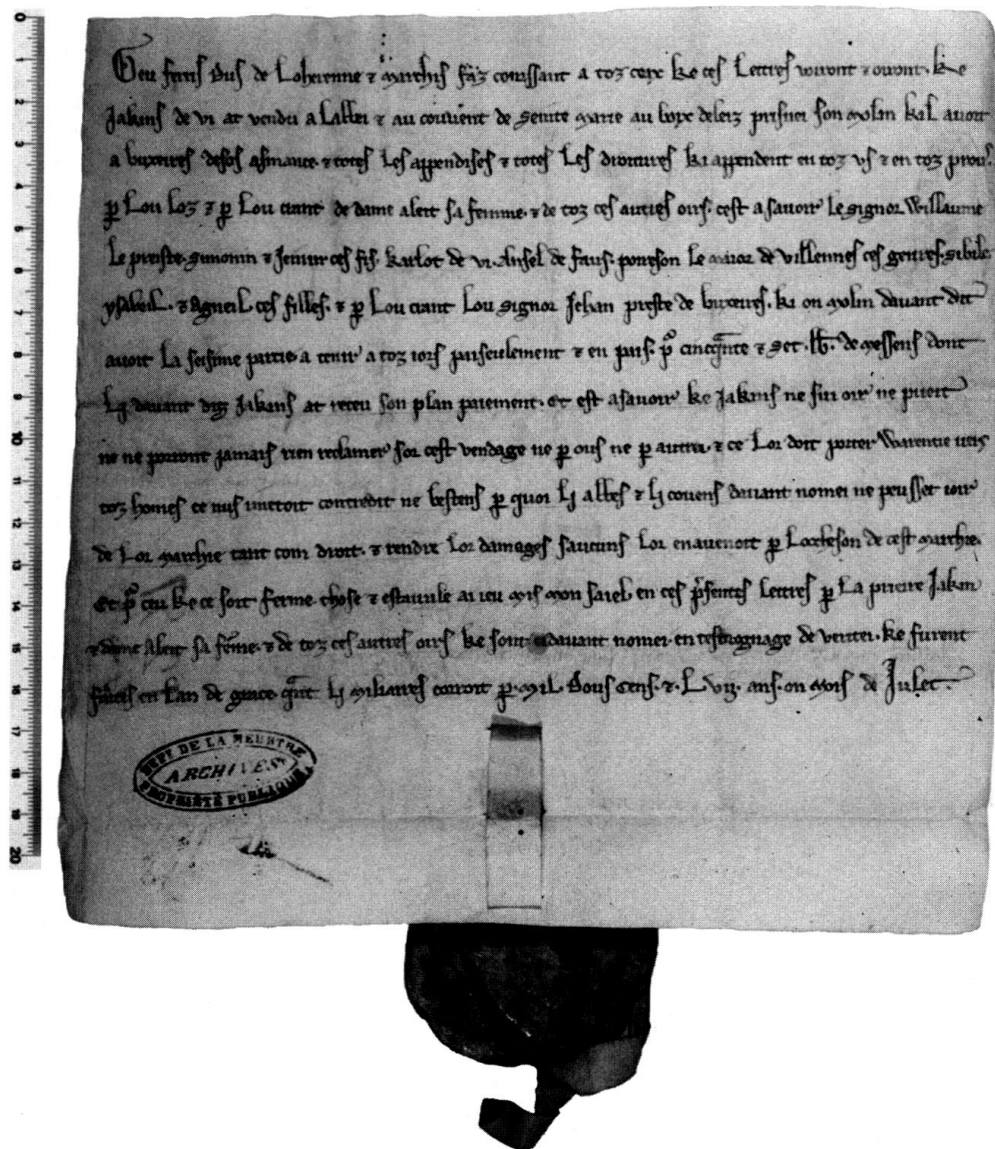 Geu ferris dus de Loherenne ⁊ marchis faz conissant a toz ceox ke ces Lettres vairont ⁊ oront. ke
Jakins de vi at vendu a Labbei ⁊ au couvent de seinte marie au boix deleiz prisnei son molin kil avoit
a buxeires desos asmance. ⁊ totes Les appendises ⁊ totes Les droitures ki appendent en toz us ⁊ en toz prous.
p Lou Loz ⁊ p Lou crant de dame aleit sa femme. ⁊ de toz ces autres oirs. cest a savoir le signor Willaume
Le preiste. symonin ⁊ ces fiz. karlot de vi. Ansel de faus. poncson Le maior de villennes ces genres. sibile
ysabeil. ⁊ Agneil ces filles. ⁊ p Lou crant Lou signor Jehan preste de buxeires. ki on molin davant dit
avoit La seisime partie. a tenir a toz jors paisiulement ⁊ en paix. p cincqnte ⁊ set. lb. de messens dont
Li davant diz Jakins at receu son plain paiement. et est a savoir ke Jakins ne sui oir ne puent
ne ne porront jamais rien reclamer sor cest vendage ne p ous ne p autrui. ⁊ ce Lor doit porter Warentie vers
toz homes ce nus i metoit contredit ne bestens p quoi Li abbes ⁊ Li covens davant nomei ne peusset joir
de Lor marchie tant com droit. ⁊ rendre Lor damages saucuns Lor en avenoit p Locheson de cest marchie.
Et p ceu ke ce soit ferme chose ⁊ estauule ai jeu mis mon saiel. en ces psentes Lettres p La priere Jakin
⁊ dame Aleit sa feme. ⁊ de toz ces autres oirs ke sont davant nomei. en tesmognage de veritei. ke furent
faites en Lan de grace. qnt Li miliaires corroit p. mil. Dous cens. ⁊. L. vij. ans. on mois de Julet.
DEPT DE LA MEURTHE
ARCHIVES
PROPRIÉTÉ PUBLIQUE
0
1
2
3
4
5
6
7
8
9
10
11
12
13
14
15
16
17
18
19
20